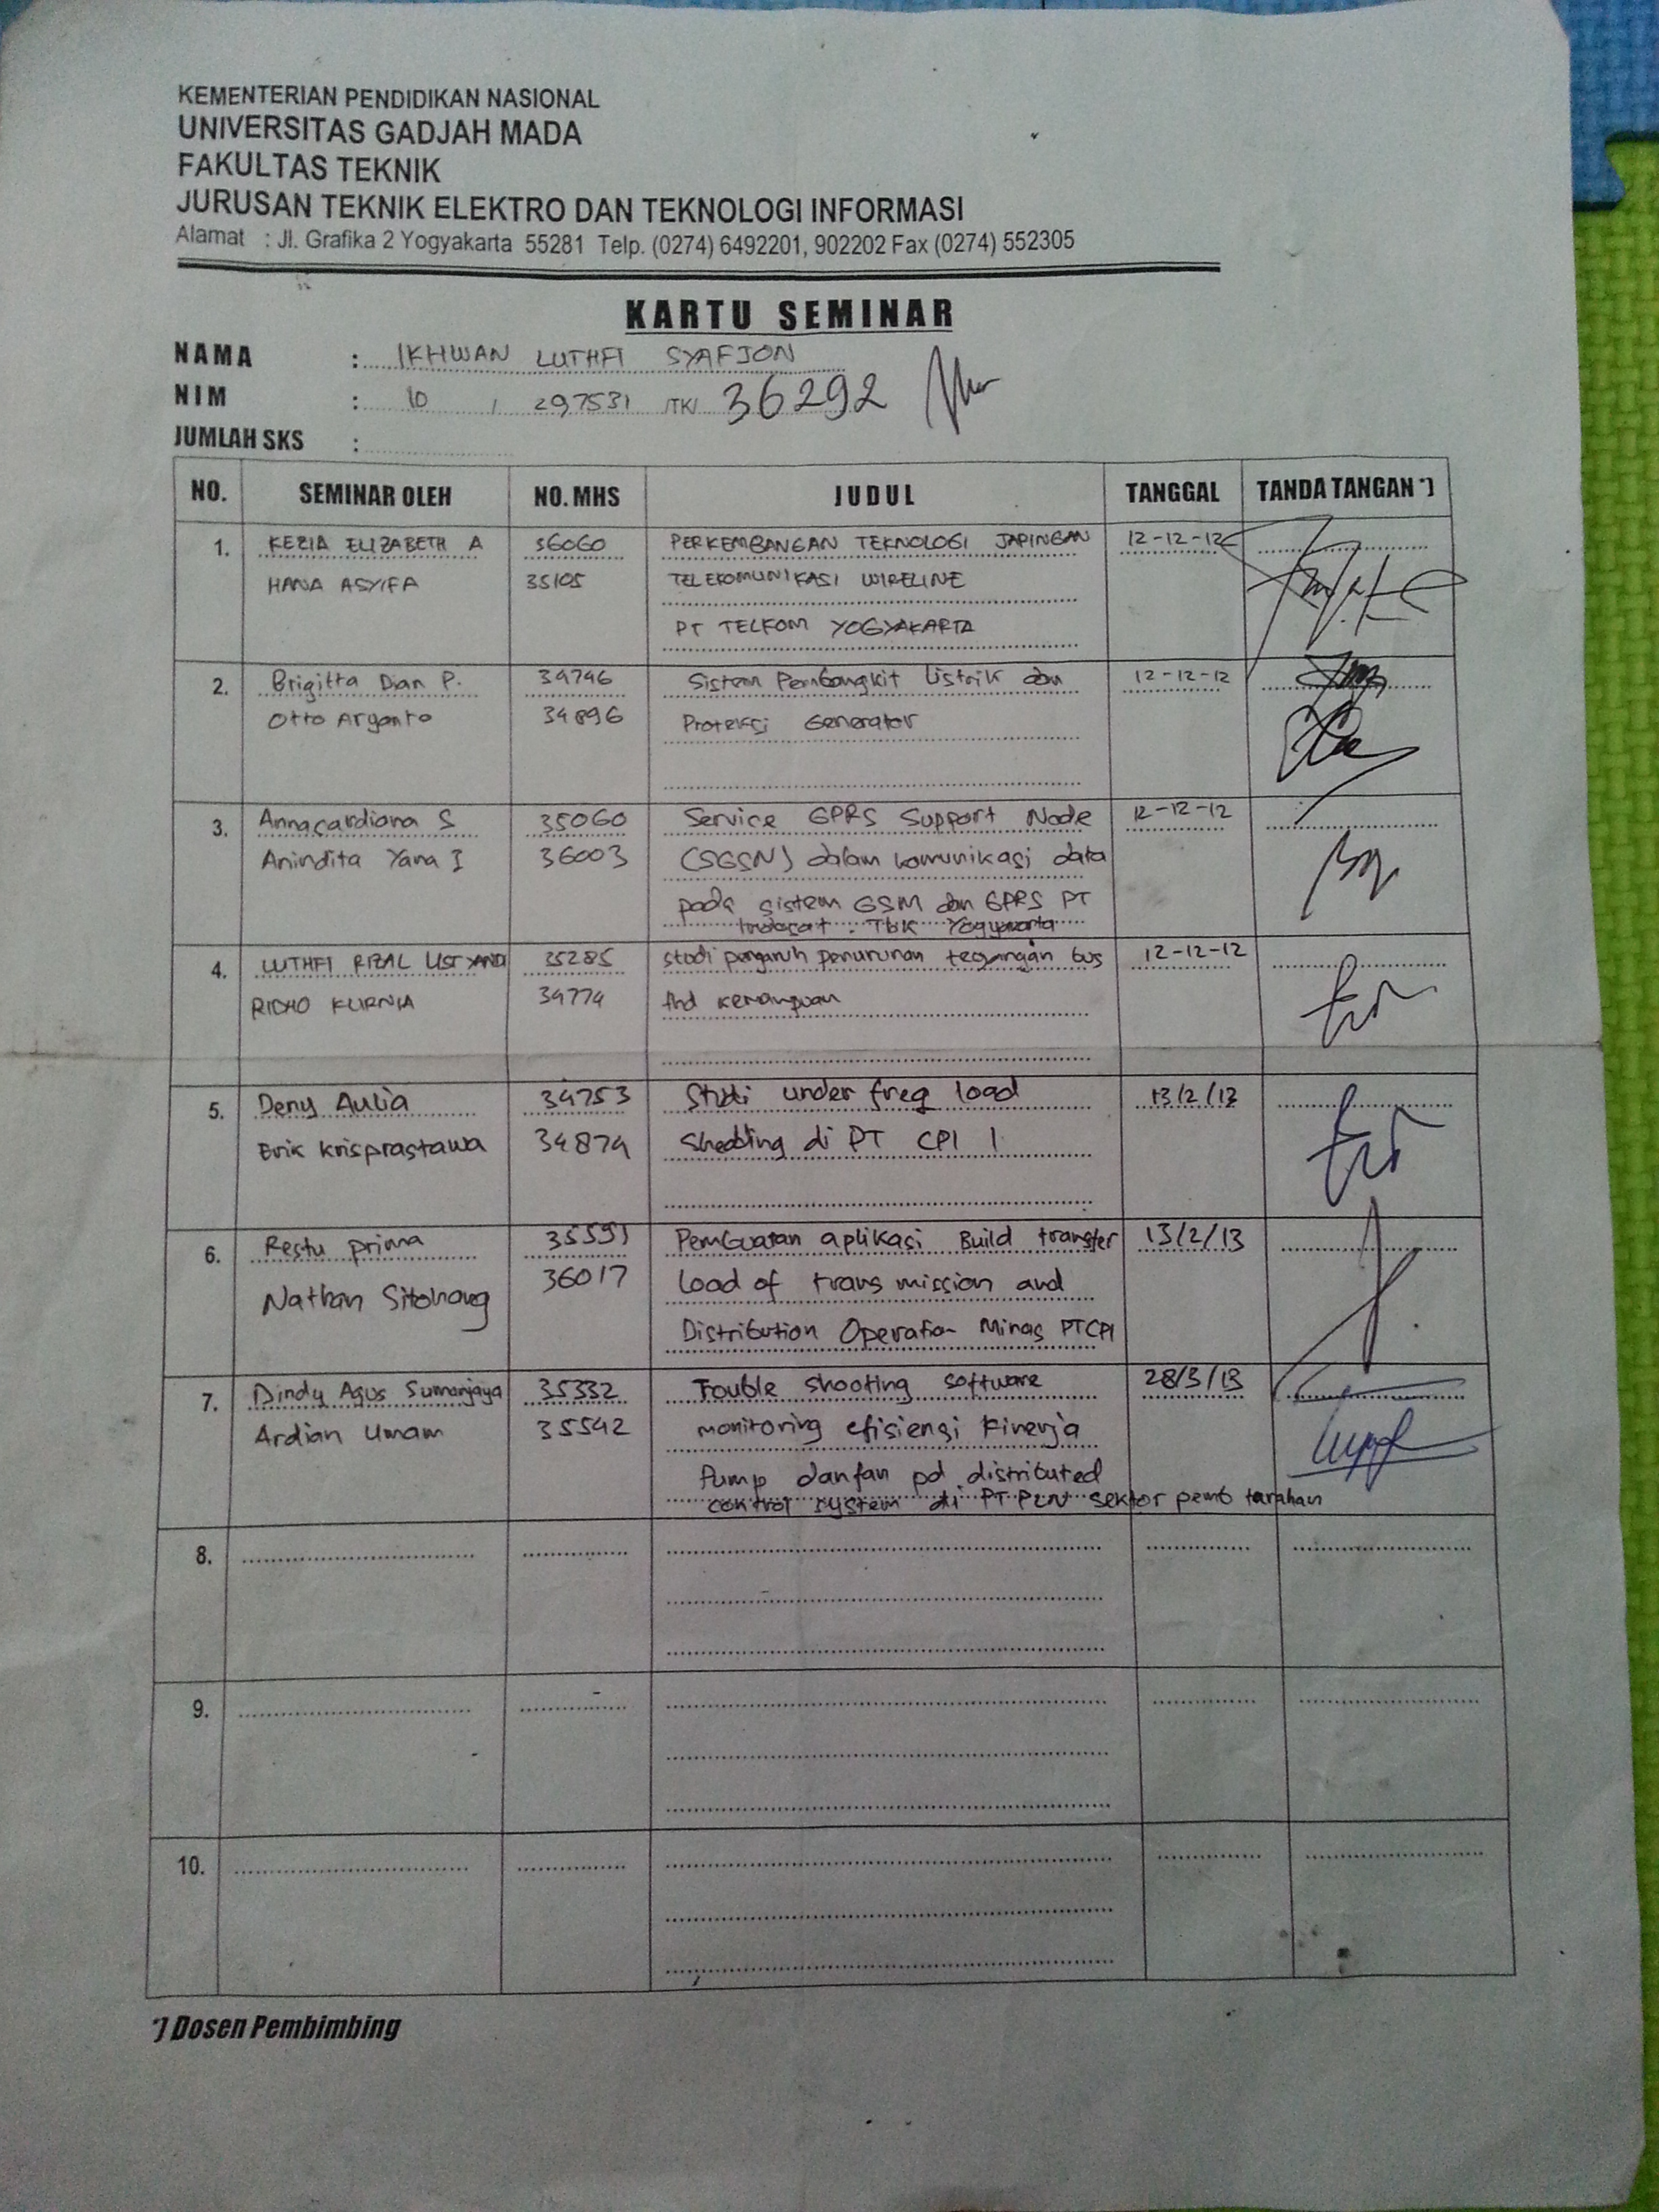 KEMENTERIAN PENDIDIKAN NASIONAL
UNIVERSITAS GADJAH MADA
FAKULTAS TEKNIK
JURUSAN TEKNIK ELEKTRO DAN TEKNOLOGI INFORMASI
Alamat : Jl. Grafika 2 Yogyakarta 55281 Telp. (0274) 6492201, 902202 Fax (0274) 552305
KARTU SEMINAR
NAMA : IKHWAN LUTHFI SYAFJON
NIM : 10 / 297531 /TK/ 36292
JUMLAH SKS :
NO. SEMINAR OLEH NO. MHS JUDUL TANGGAL TANDA TANGAN *)
1. KEZIA ELIZABETH A 36060 PERKEMBANGAN TEKNOLOGI JARINGAN 12-12-12
HANA ASYIFA 35105 TELEKOMUNIKASI WIRELINE
PT TELKOM YOGYAKARTA
2. Brigitta Dian P. 34746 Sistem Pembangkit Listrik dan 12-12-12
Otto Aryanto 34896 Proteksi Generator
3. Annacardiana S 35060 Service GPRS Support Node 12-12-12
Anindita Yana I 36003 (SGSN) dalam komunikasi data
pada sistem GSM dan GPRS PT
Indosat Tbk Yogyakarta
4. LUTHFI RIZAL 35285 studi pengaruh penurunan tegangan bus 12-12-12
RIDHO KURNIA 34774 thd kemampuan
5. Deny Aulia 34753 Studi under freq load 13/2/13
Erik Krisprastawa 34874 Shedding di PT CPI
6. Restu prima 35591 Pembuatan aplikasi Build transfer 13/2/13
Nathan Sitohang 36017 Load of transmission and
Distribution Operation Minas PTCPI
7. Dindy Agus Sumanjaya 35332 Trouble shooting software 28/3/13
Ardian Umam 35542 monitoring efisiensi Kinerja
Pump dan fan pd distributed
control system di PT PLN sektor pemb tarahan
8.
9.
10.
*) Dosen Pembimbing